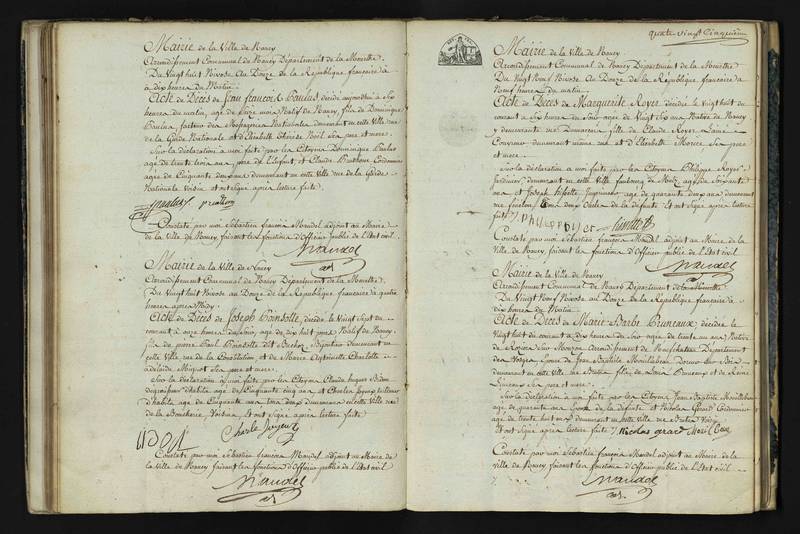 Mairie de la Ville de Nancy
Arrondissement Communal de Nancy Département de la Meurthe
Du Vingt huit Nivose an Douze de la République française à
dix heures du Matin
Acte de Décès de Jean françois Paulus, décédé aujourd'hui à six
heures du matin, agé de onze mois Natif de Nancy, fils de Dominique
Paulus, facteur des Messageries Nationales demeurant en cette Ville rue
de la Garde Nationale et d'Elisabeth Thérèse Noël ses père et mère.
Sur la déclaration à moi faite par les Citoyens Dominique Paulus
agé de trente trois ans père de l'Enfant, et Claude Prudhon Cordonnier
agé de Cinquante deux ans demeurant en cette Ville rue de la Garde
Nationale Voisin et ont signé après lecture faite
Paulus prudhon
Constaté par moi Sébastien françois Mandel adjoint au Maire
de la Ville de Nancy faisant les fonctions d'Officier public de l'Etat civil
Mandel
adj
Mairie de la Ville de Nancy
Arrondissement Communal de Nancy Département de la Meurthe
Du Vingt huit Nivose an Douze de la République française à quatre
heures après Midy
Acte de Décès de Joseph Poinsotte, décédé le Vingt sept du
courant à onze heures du soir, agé de dix huit jours Natif de Nancy,
fils de pierre Paul Poinsotte dit Bijoutier demeurant en
cette Ville rue de la Constitution et de Marie Antoinette Charlotte
adélaide Mignot ses père et mère.
Sur la déclaration à moi faite par les Citoyens Claude hugues
d'habits agé de Cinquante cinq ans et Charles tailleur
d'habits agé de Cinquante ans tous deux demeurant en cette Ville rue
de la Boucherie, Voisins, et ont signé après lecture faite
Charle
Constaté par moi Sébastien françois Mandel adjoint au Maire de
la Ville de Nancy faisant les fonctions d'Officier public de l'Etat civil
Mandel
adj
quatre Vingt Cinquième
Mairie de la Ville de Nancy
Arrondissement Communal de Nancy Département de la Meurthe
Du Vingt Neuf Nivose an Douze de la République française à
Neuf heures du matin
Acte de Décès de Marguerite Royer décédée le Vingt huit du
courant à six heures du soir agée de Vingt six ans Native de Nancy
y demeurante rue fille de Claude Royer
Couvreur demeurant même rue et d'Elisabeth ses père
et mère
Sur la déclaration à moi faite par les Citoyens Philippe Royer
Jardinier demeurant en cette Ville faubourg de Metz agé de soixante
ans et Joseph Imprimeur agé de quarante deux ans demeurant
rue Oncle de la défunte et ont signé après lecture
faite
Philip royer
Constaté par moi Sébastien françois Mandel adjoint au Maire de la
Ville de Nancy faisant les fonctions d'Officier public de l'Etat civil
Mandel
adj
Mairie de la Ville de Nancy
Arrondissement Communal de Nancy Département de la Meurthe
Du Vingt Neuf Nivose an Douze de la République française à
dix heures du Matin
Acte de Décès de Marie Barbe Bruneaux, décédée le
Vingt huit du courant à dix heures du soir agée de trente un ans Native
de Arrondissement de Neufchateau Département
des Vosges, épouse de Jean Baptiste sur Bois
demeurant en cette Ville fille de Louis Bruneaux et de Reine
ses père et mère
Sur la déclaration à moi faite par les Citoyens Jean Baptiste
agé de quarante ans époux de la défunte et Nicolas Gerard Cordonnier
agé de trente huit ans demeurant en cette Ville
et ont signé après lecture faite Nicolas gerard
Constaté par moi Sébastien françois Mandel adjoint au Maire de la
Ville de Nancy faisant les fonctions d'Officier public de l'Etat civil
Mandel
adj